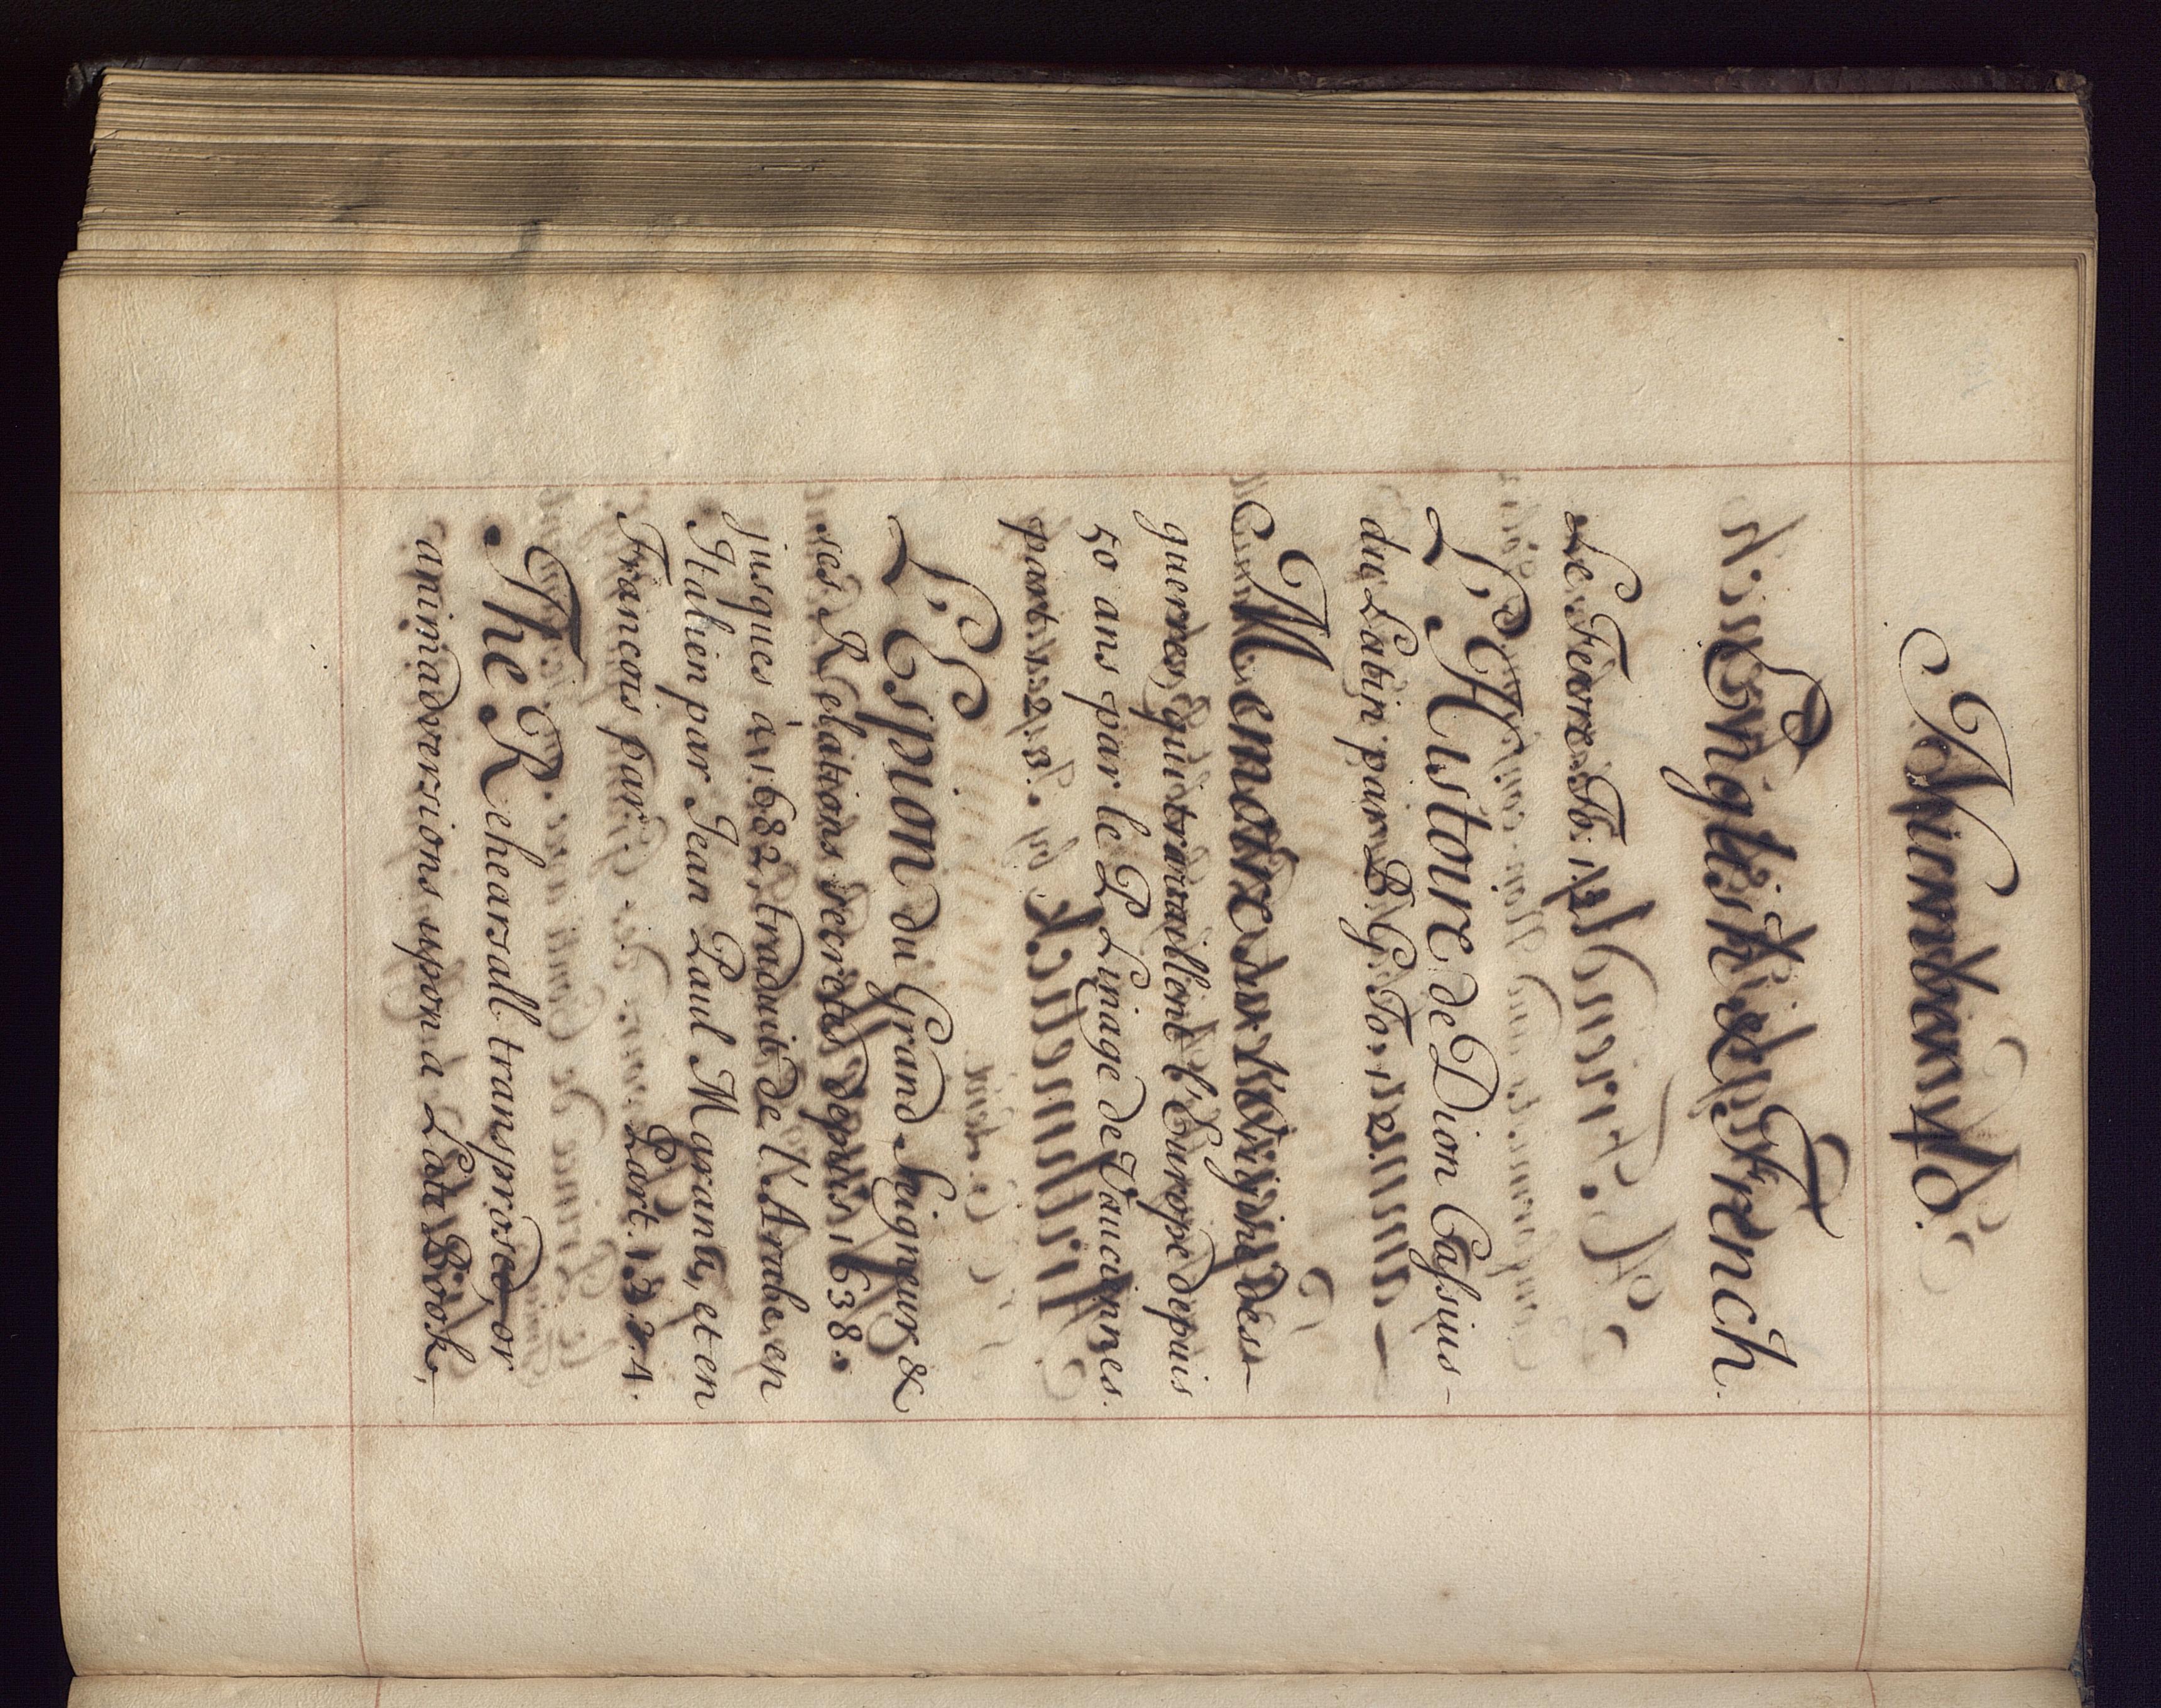 Number 40.
English & French.
Le Feore To: 1, 2
L'Histoire de Dion Cassius -
du Latin par B. G. To. 1. 2.
Memoire sur l'Origine des -
guerres, qui travaillent l'Europe depuis
50 ans par le P Linage de Vauciennes.
part. 1. 2. 3.
L'Espion du Grand Seigneur &
ses Relations secretes depuis 1638.
jusques à 1682, traduit de l'Arabe, en
Italien par Jean Paul Marana, et en
Francois par. Part. 1 2 3. 4.
The Rehearsall transprosed, or
animadversions upon a Late Book, -